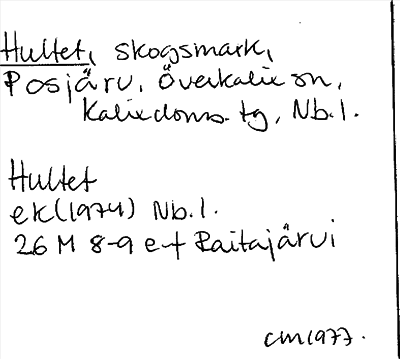 Hultet, skogsmark,
Posjärv, Överkalix sn,
Kalix doms. tg, Nb. l.
Hultet
ek (1974) Nb. l.
26 M 8-9 e-f Raitajärvi
CM 1977.